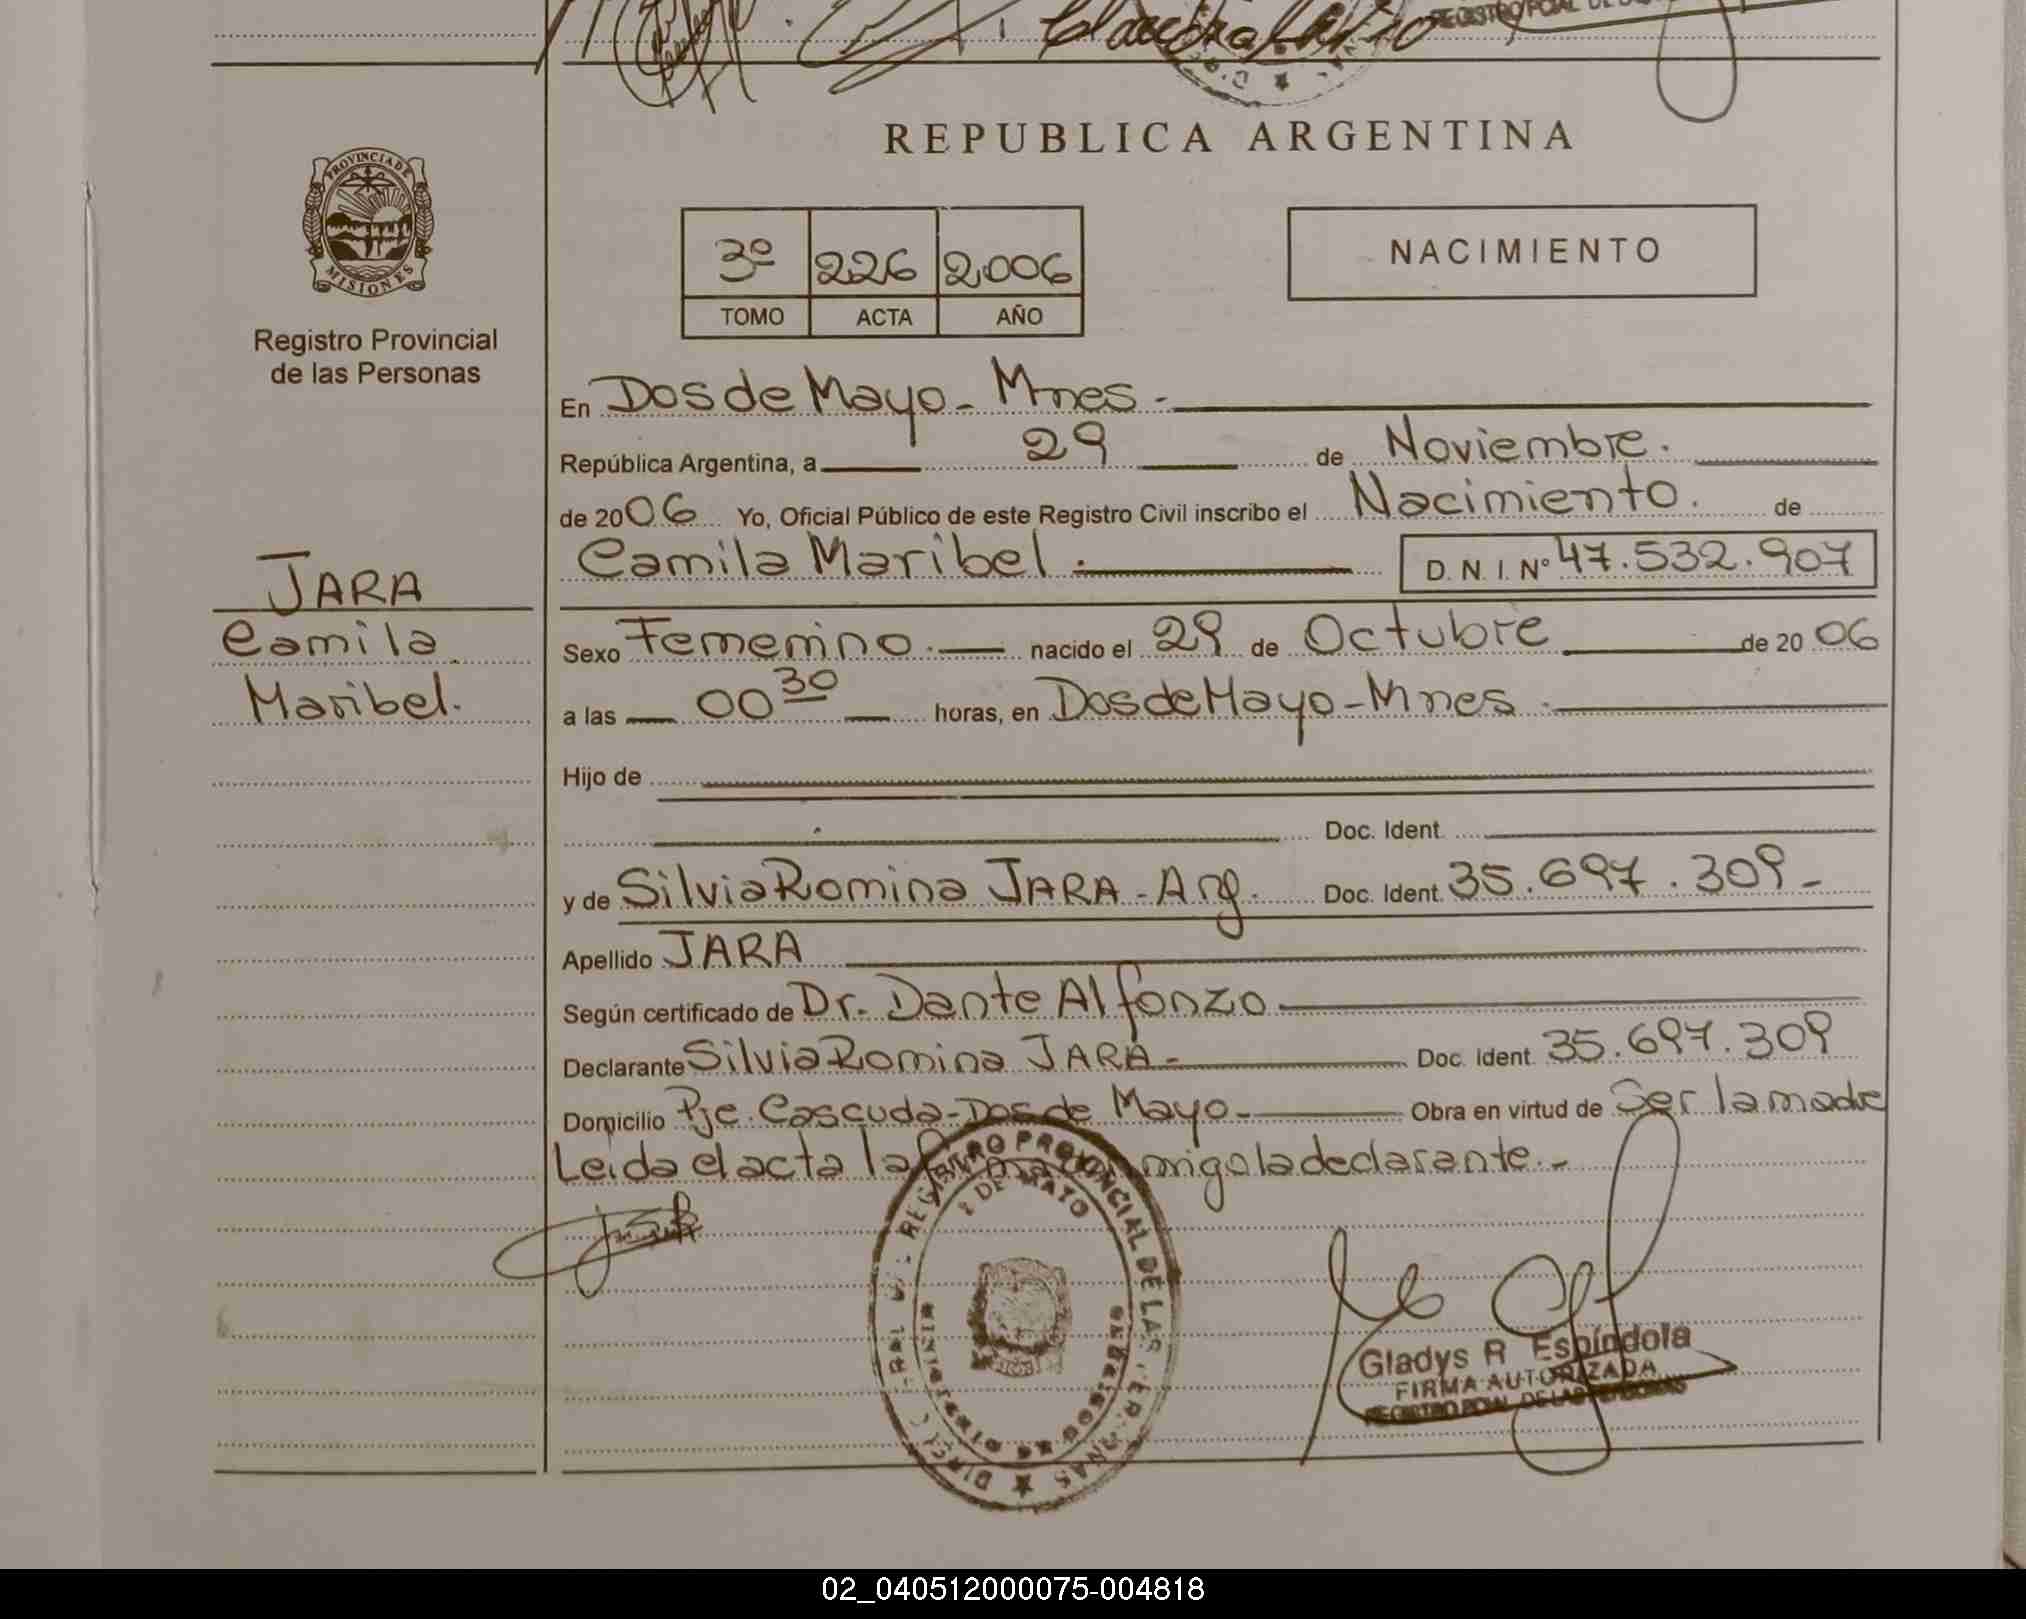 Claudia
REGISTRO PCIAL DE
REPUBLICA ARGENTINA
PROVINCIA DE
MISIONES
Registro Provincial
de las Personas
3º 226 2.006
TOMO ACTA AÑO
NACIMIENTO
En Dos de Mayo - Mnes -
República Argentina, a 29 de Noviembre.
de 2006 Yo, Oficial Público de este Registro Civil inscribo el Nacimiento. de
Camila Maribel. D.N.I. Nº 47.532.907
JARA
Camila
Maribel.
Sexo Femenino. nacido el 29 de Octubre de 2006
a las 00 30 horas, en Dos de Mayo - Mnes.
Hijo de
Doc. Ident.
y de Silvia Romina JARA - Arg. Doc. Ident. 35.697.309 -
Apellido JARA
Según certificado de Dr. Dante Alfonzo
Declarante Silvia Romina JARA - Doc. Ident. 35.697.309
Domicilio Pje. Cascuda - Dos de Mayo - Obra en virtud de Ser la madre
Leida el acta la firma conmigo la declarante. -
REGISTRO PROVINCIAL DE LAS PERSONAS
2 DE MAYO
Gladys R Espíndola
FIRMA AUTORIZADA
REGISTRO PCIAL. DE LAS PERSONAS
02_040512000075-004818